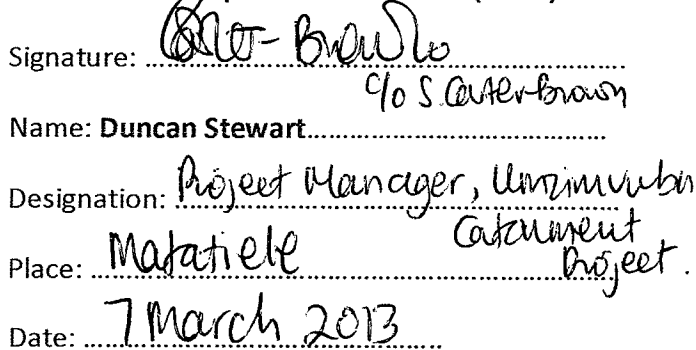 Signature: Carter-Brown
c/o S Carter-Brown
Name: Duncan Stewart
Designation: Project Manager, Umzimvubu
Catchment
Place: Matatiele Project.
Date: 7 March 2013